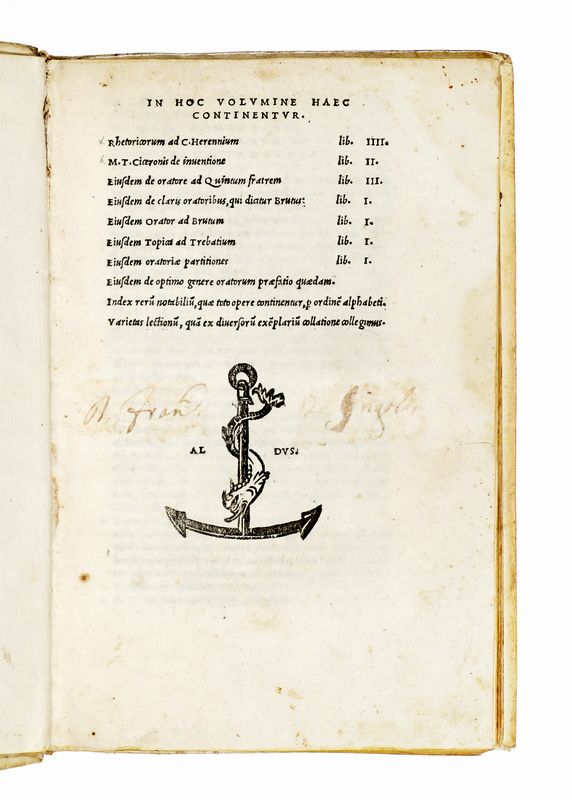 IN HOC VOLVMINE HAEC
CONTINENTVR.
Rhetoricorum ad C. Herennium lib. IIII.
M. T. Ciceronis de inuentione lib. II.
Eiuſdem de oratore ad Quintum fratrem lib. III.
Eiuſdem de claris oratoribus, qui dicitur Brutus: lib. I.
Eiuſdem Orator ad Brutum lib. I.
Eiuſdem Topica ad Trebatium lib. I.
Eiuſdem oratoriæ partitiones lib. I.
Eiuſdem de optimo genere oratorum præfatio quædam.
Index rerū notabiliū, quæ toto opere continentur, ꝑ ordinē alphabeti.
Varietas lectionū, quā ex diuerſorū exēplariū collatione collegimus.
AL DVS.